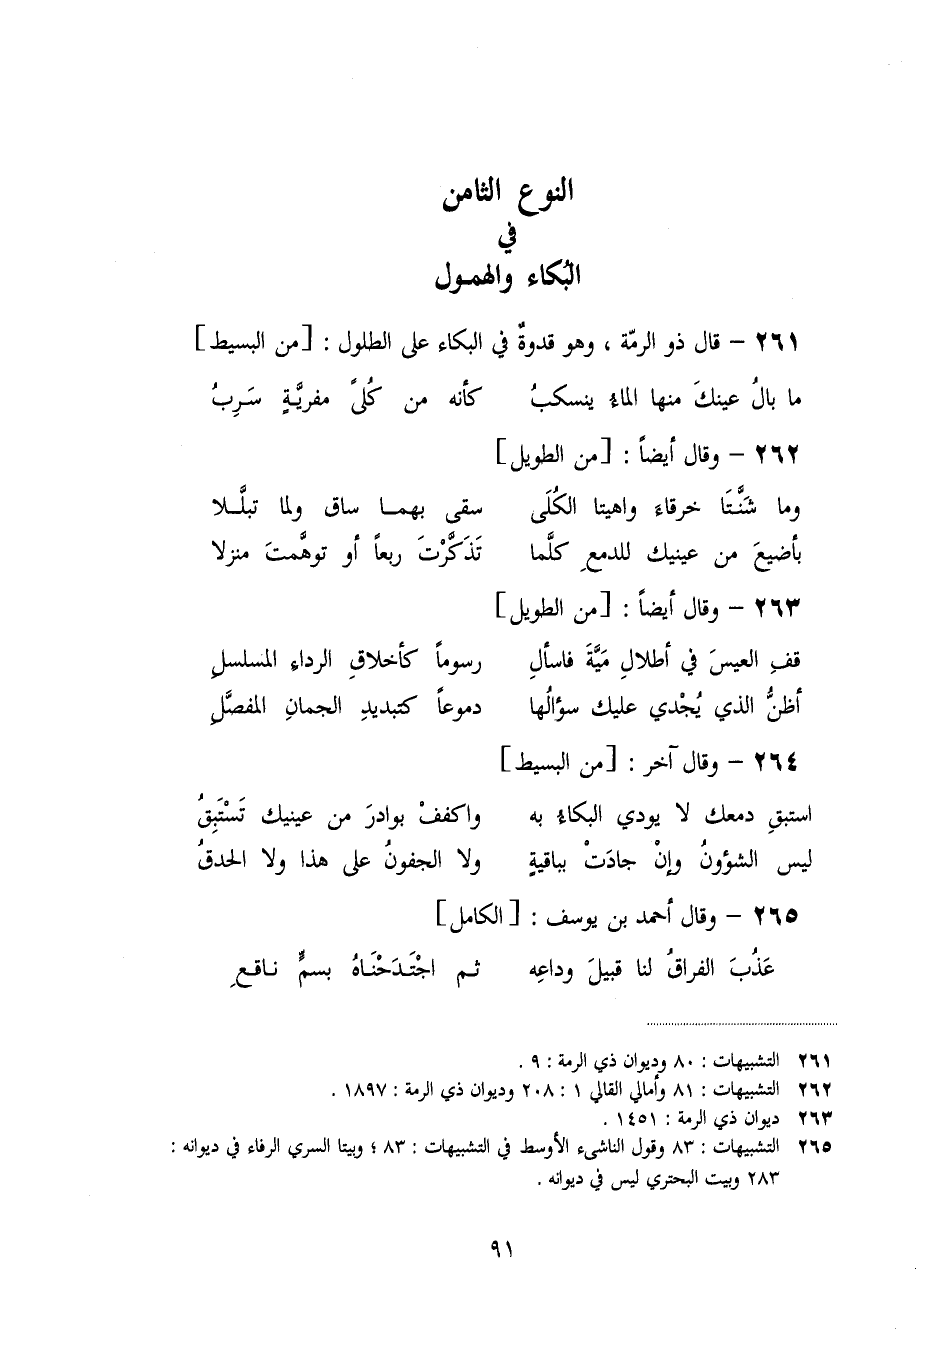 النوع الثامن
في
البُكاء والهمـول
٢٦١ – قال ذو الرمّة ، وهو قدوةٌ في البكاء على الطلول : [من البسيط]
ما بالُ عينكَ منها الماءُ ينسكبُ كأنه من كُلىً مفريَّةٍ سَرِبُ
٢٦٢ – وقال أيضاً : [من الطويل]
وما شَنَّتَا خرقاءَ واهيتا الكُلَى سقى بهمـا ساق ولما تبلَّـلا
بأضيعَ من عينيك للدمعِ كلَّما تَذَكَّرْتَ ربعاً أو توهَّمتَ منزلا
٢٦٣ – وقال أيضاً : [من الطويل]
قفِ العيسَ في أطلالِ مَيَّةَ فاسألِ رسوماً كأخلاقِ الرداءِ المسلسلِ
أظنُّ الذي يُجْدي عليك سؤالُها دموعاً كتبديدِ الجمانِ المفصَّلِ
٢٦٤ – وقال آخر : [من البسيط]
استبقِ دمعك لا يودي البكاءُ به واكففْ بوادرَ من عينيك تَسْتَبِقُ
ليس الشؤونُ وإنْ جادَتْ بباقيةٍ ولا الجفونُ على هذا ولا الحدقُ
٢٦٥ – وقال أحمد بن يوسف : [الكامل]
عَذُبَ الفراقُ لنا قبيلَ وداعِه ثم اجْتَدَحْنَاهُ بسمٍّ ناقعِ
٢٦١ التشبيهات : ٨٠ وديوان ذي الرمة : ٩ .
٢٦٢ التشبيهات : ٨١ وأمالي القالي ١ : ٢٠٨ وديوان ذي الرمة : ١٨٩٧ .
٢٦٣ ديوان ذي الرمة : ١٤٥١ .
٢٦٥ التشبيهات : ٨٣ وقول الناشىء الأوسط في التشبيهات : ٨٣ ؛ وبيتا السري الرفاء في ديوانه :
٢٨٣ وبيت البحتري ليس في ديوانه .
٩١